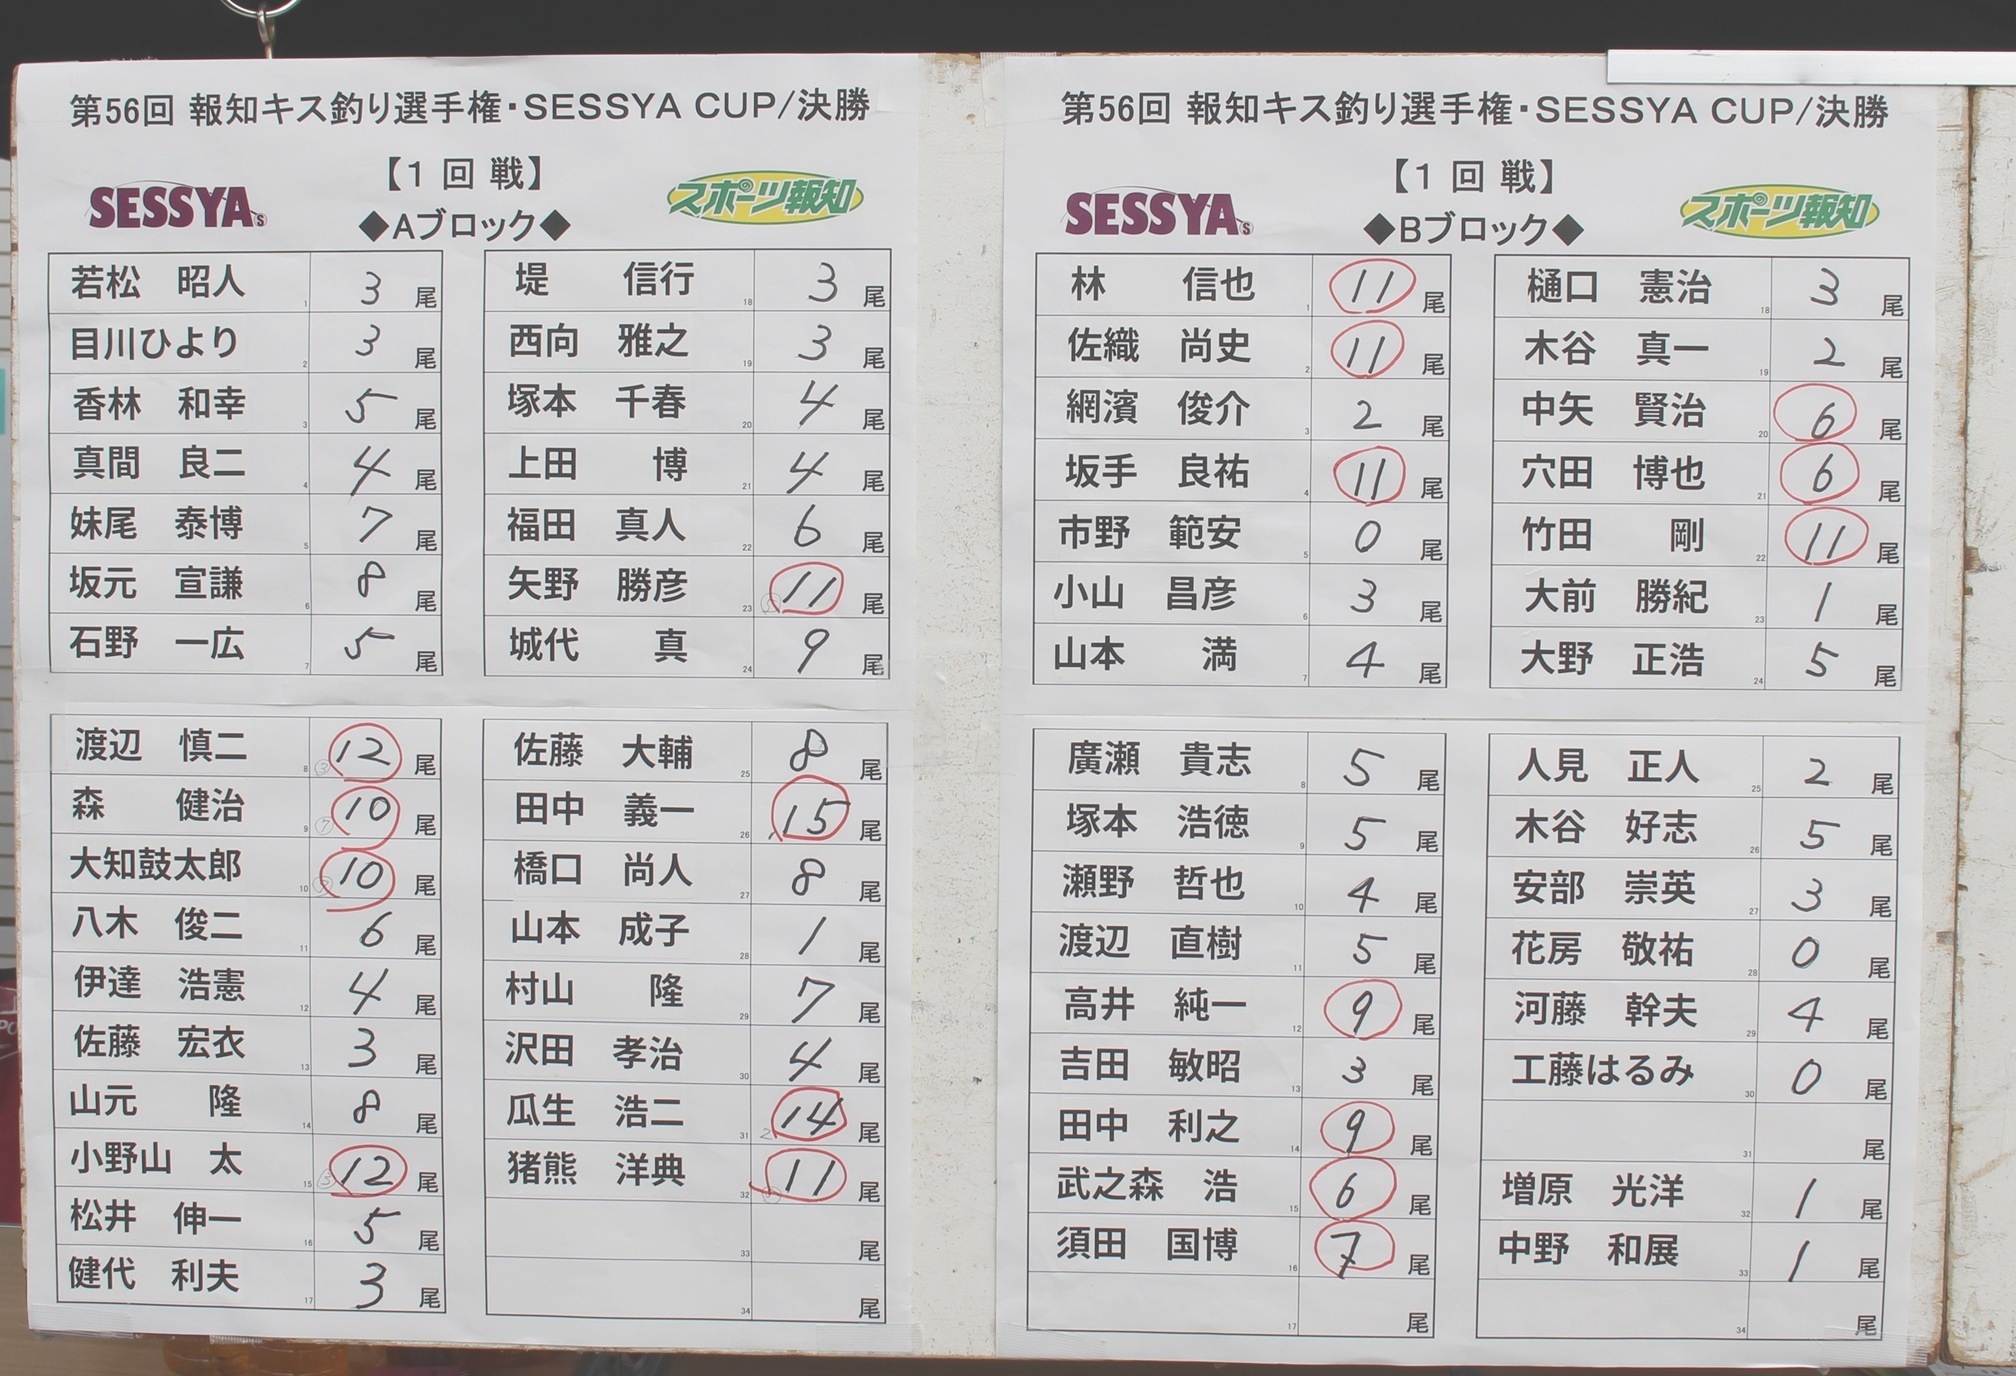 第56回 報知キス釣り選手権・SESSYA CUP/決勝
【1 回 戦】
SESSYA'S
スポーツ報知
◆Aブロック◆
若松 昭人 1 3 尾
目川ひより 2 3 尾
香林 和幸 3 5 尾
真間 良二 4 4 尾
妹尾 泰博 5 7 尾
坂元 宣謙 6 8 尾
石野 一広 7 5 尾
渡辺 慎二 8 ③ 12 尾
森 健治 9 ⑦ 10 尾
大知鼓太郎 10 10 尾
八木 俊二 11 6 尾
伊達 浩憲 12 4 尾
佐藤 宏衣 13 3 尾
山元 隆 14 8 尾
小野山 太 15 ③ 12 尾
松井 伸一 16 5 尾
健代 利夫 17 3 尾
堤 信行 18 3 尾
西向 雅之 19 3 尾
塚本 千春 20 4 尾
上田 博 21 4 尾
福田 真人 22 6 尾
矢野 勝彦 23 ⑤ 11 尾
城代 真 24 9 尾
佐藤 大輔 25 8 尾
田中 義一 26 15 尾
橋口 尚人 27 8 尾
山本 成子 28 1 尾
村山 隆 29 7 尾
沢田 孝治 30 4 尾
瓜生 浩二 31 2 14 尾
猪熊 洋典 32 11 尾
33 尾
34 尾
第56回 報知キス釣り選手権・SESSYA CUP/決勝
【1 回 戦】
SESSYA'S
スポーツ報知
◆Bブロック◆
林 信也 1 11 尾
佐織 尚史 2 11 尾
網濱 俊介 3 2 尾
坂手 良祐 4 11 尾
市野 範安 5 0 尾
小山 昌彦 6 3 尾
山本 満 7 4 尾
廣瀬 貴志 8 5 尾
塚本 浩徳 9 5 尾
瀬野 哲也 10 4 尾
渡辺 直樹 11 5 尾
高井 純一 12 9 尾
吉田 敏昭 13 3 尾
田中 利之 14 9 尾
武之森 浩 15 6 尾
須田 国博 16 7 尾
17 尾
樋口 憲治 18 3 尾
木谷 真一 19 2 尾
中矢 賢治 20 6 尾
穴田 博也 21 6 尾
竹田 剛 22 11 尾
大前 勝紀 23 1 尾
大野 正浩 24 5 尾
人見 正人 25 2 尾
木谷 好志 26 5 尾
安部 崇英 27 3 尾
花房 敬祐 28 0 尾
河藤 幹夫 29 4 尾
工藤はるみ 30 0 尾
31 尾
増原 光洋 32 1 尾
中野 和展 33 1 尾
34 尾